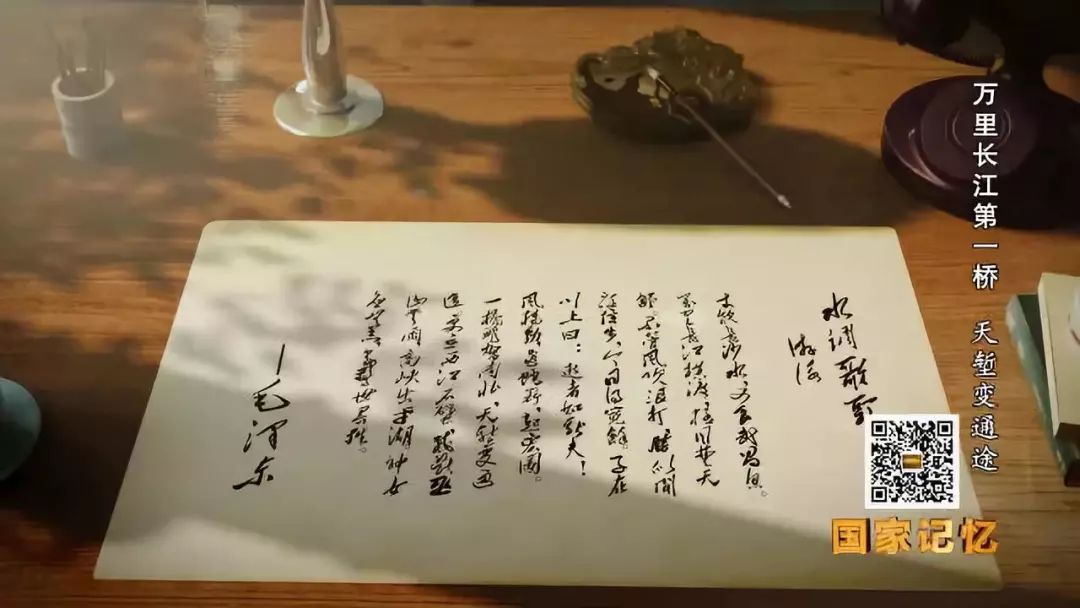 万里长江第一桥 天堑变通途
水调歌头
游泳
才饮长沙水，又食武昌鱼。
万里长江横渡，极目楚天
舒。不管风吹浪打，胜似闲
庭信步，今日得宽馀。子在
川上曰：逝者如斯夫！
风樯动，龟蛇静，起宏图。
一桥飞架南北，天堑变通
途。更立西江石壁，截断巫
山云雨，高峡出平湖。神女
应无恙，当惊世界殊。
—毛泽东
国家记忆